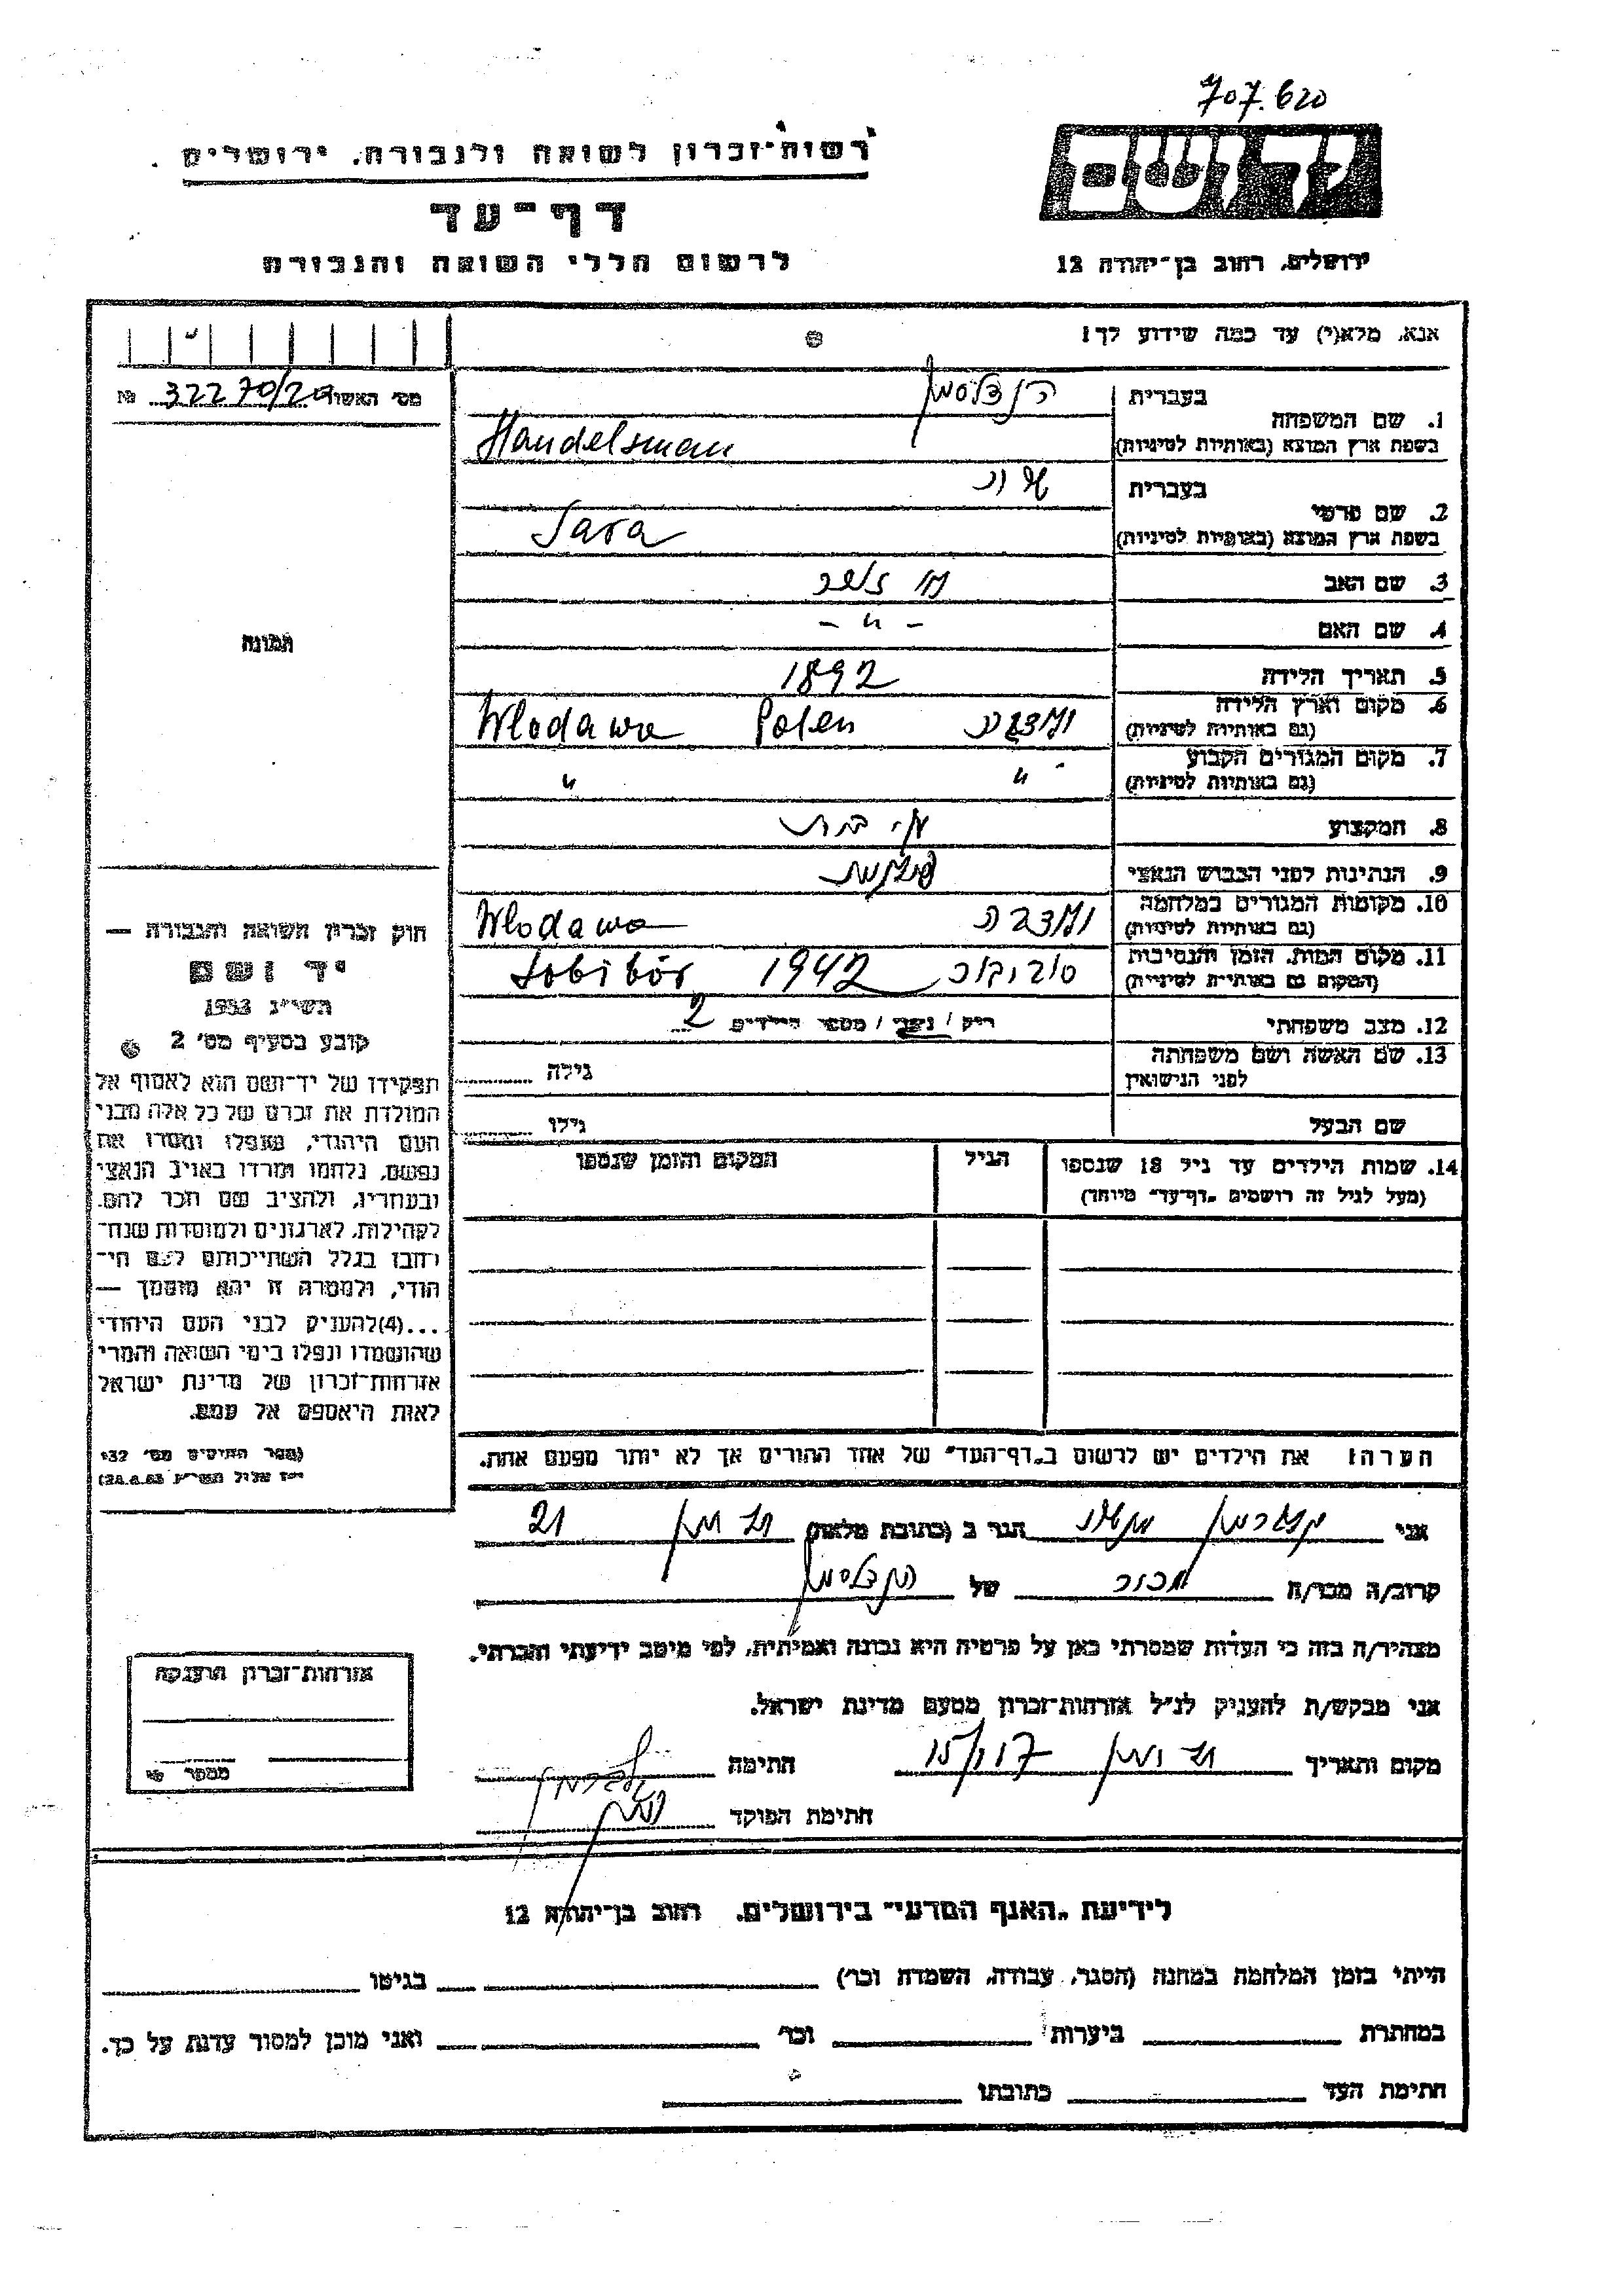 707.620
רשות־זכרון לשואה ולגבורה, ירושלים
דף־עד
לרשום חללי השואה והגבורה
יד ושם
ירושלים, רחוב בן־יהודה 12
אנא, מלא(י) עד כמה שידוע לך!
מס׳ האשה 32270/20 №
1. שם המשפחה
בעברית הנדלסמן
בשפת ארץ המוצא (באותיות לטיניות) Handelsman
2. שם פרטי
בעברית שרה
בשפת ארץ המוצא (באותיות לטיניות) Sara
3. שם האב
4. שם האם - " -
5. תאריך הלידה 1892
6. מקום וארץ הלידה
(גם באותיות לטיניות) ולודבה Polen Wlodawa
7. מקום המגורים הקבוע
(גם באותיות לטיניות) " "
8. המקצוע
9. הנתינות לפני הכבוש הנאצי פולנית
10. מקומות המגורים במלחמה
(גם באותיות לטיניות) ולודבה Wlodawa
11. מקום המות, הזמן והנסיבות
(המקום גם באותיות לטיניות) סוביבור 1942 Sobibór
12. מצב משפחתי רוק / נשוי / מספר הילדים 2
13. שם האשה ושם משפחתה
לפני הנישואין גילה
שם הבעל גילו
14. שמות הילדים עד גיל 18 שנספו
(מעל לגיל זה רושמים „דף־עד״ מיוחד)
הגיל
המקום והזמן שנספו
הערה! את הילדים יש לרשום ב„דף־העד״ של אחד ההורים אך לא יותר מפעם אחת.
תמונה
חוק זכרון השואה והגבורה —
יד ושם
תשי״ג 1953
קובע בסעיף מס׳ 2
תפקידו של יד־ושם הוא לאסוף אל
המולדת את זכרם של כל אלה מבני
העם היהודי, שנפלו ומסרו את
נפשם, נלחמו ומרדו באויב הנאצי
ובעוזריו, ולהציב שם וזכר להם,
לקהילות, לארגונים ולמוסדות שנח־
רבו בגלל השתייכותם לעם הי־
הודי, ולמטרה זו יהא מוסמך —
...(4)להעניק לבני העם היהודי
שהושמדו ונפלו בימי השואה והמרי
אזרחות־זכרון של מדינת ישראל
לאות היאספם אל עמם.
(ספר החוקים מס׳ 132
י״ז אלול תשי״ג 28.8.53)
אני הגר ב (כתובת מלאה) 21
קרוב/ה מכר/ה מכר של הנדלסמן
מצהיר/ה בזה כי העדות שמסרתי כאן על פרטיה היא נכונה ואמיתית, לפי מיטב ידיעתי והכרתי.
אני מבקש/ת להעניק לנ״ל אזרחות־זכרון מטעם מדינת ישראל.
מקום ותאריך חתימה
חתימת הפוקד
אזרחות־זכרון הוענקה
מספר
לידיעת „האגף המדעי״ בירושלים, רחוב בן־יהודה 12
הייתי בזמן המלחמה במחנה (הסגר, עבודה, השמדה וכו׳) בגיטו
במחתרת ביערות וכו׳ ואני מוכן למסור עדות על כך.
חתימת העד כתובתו